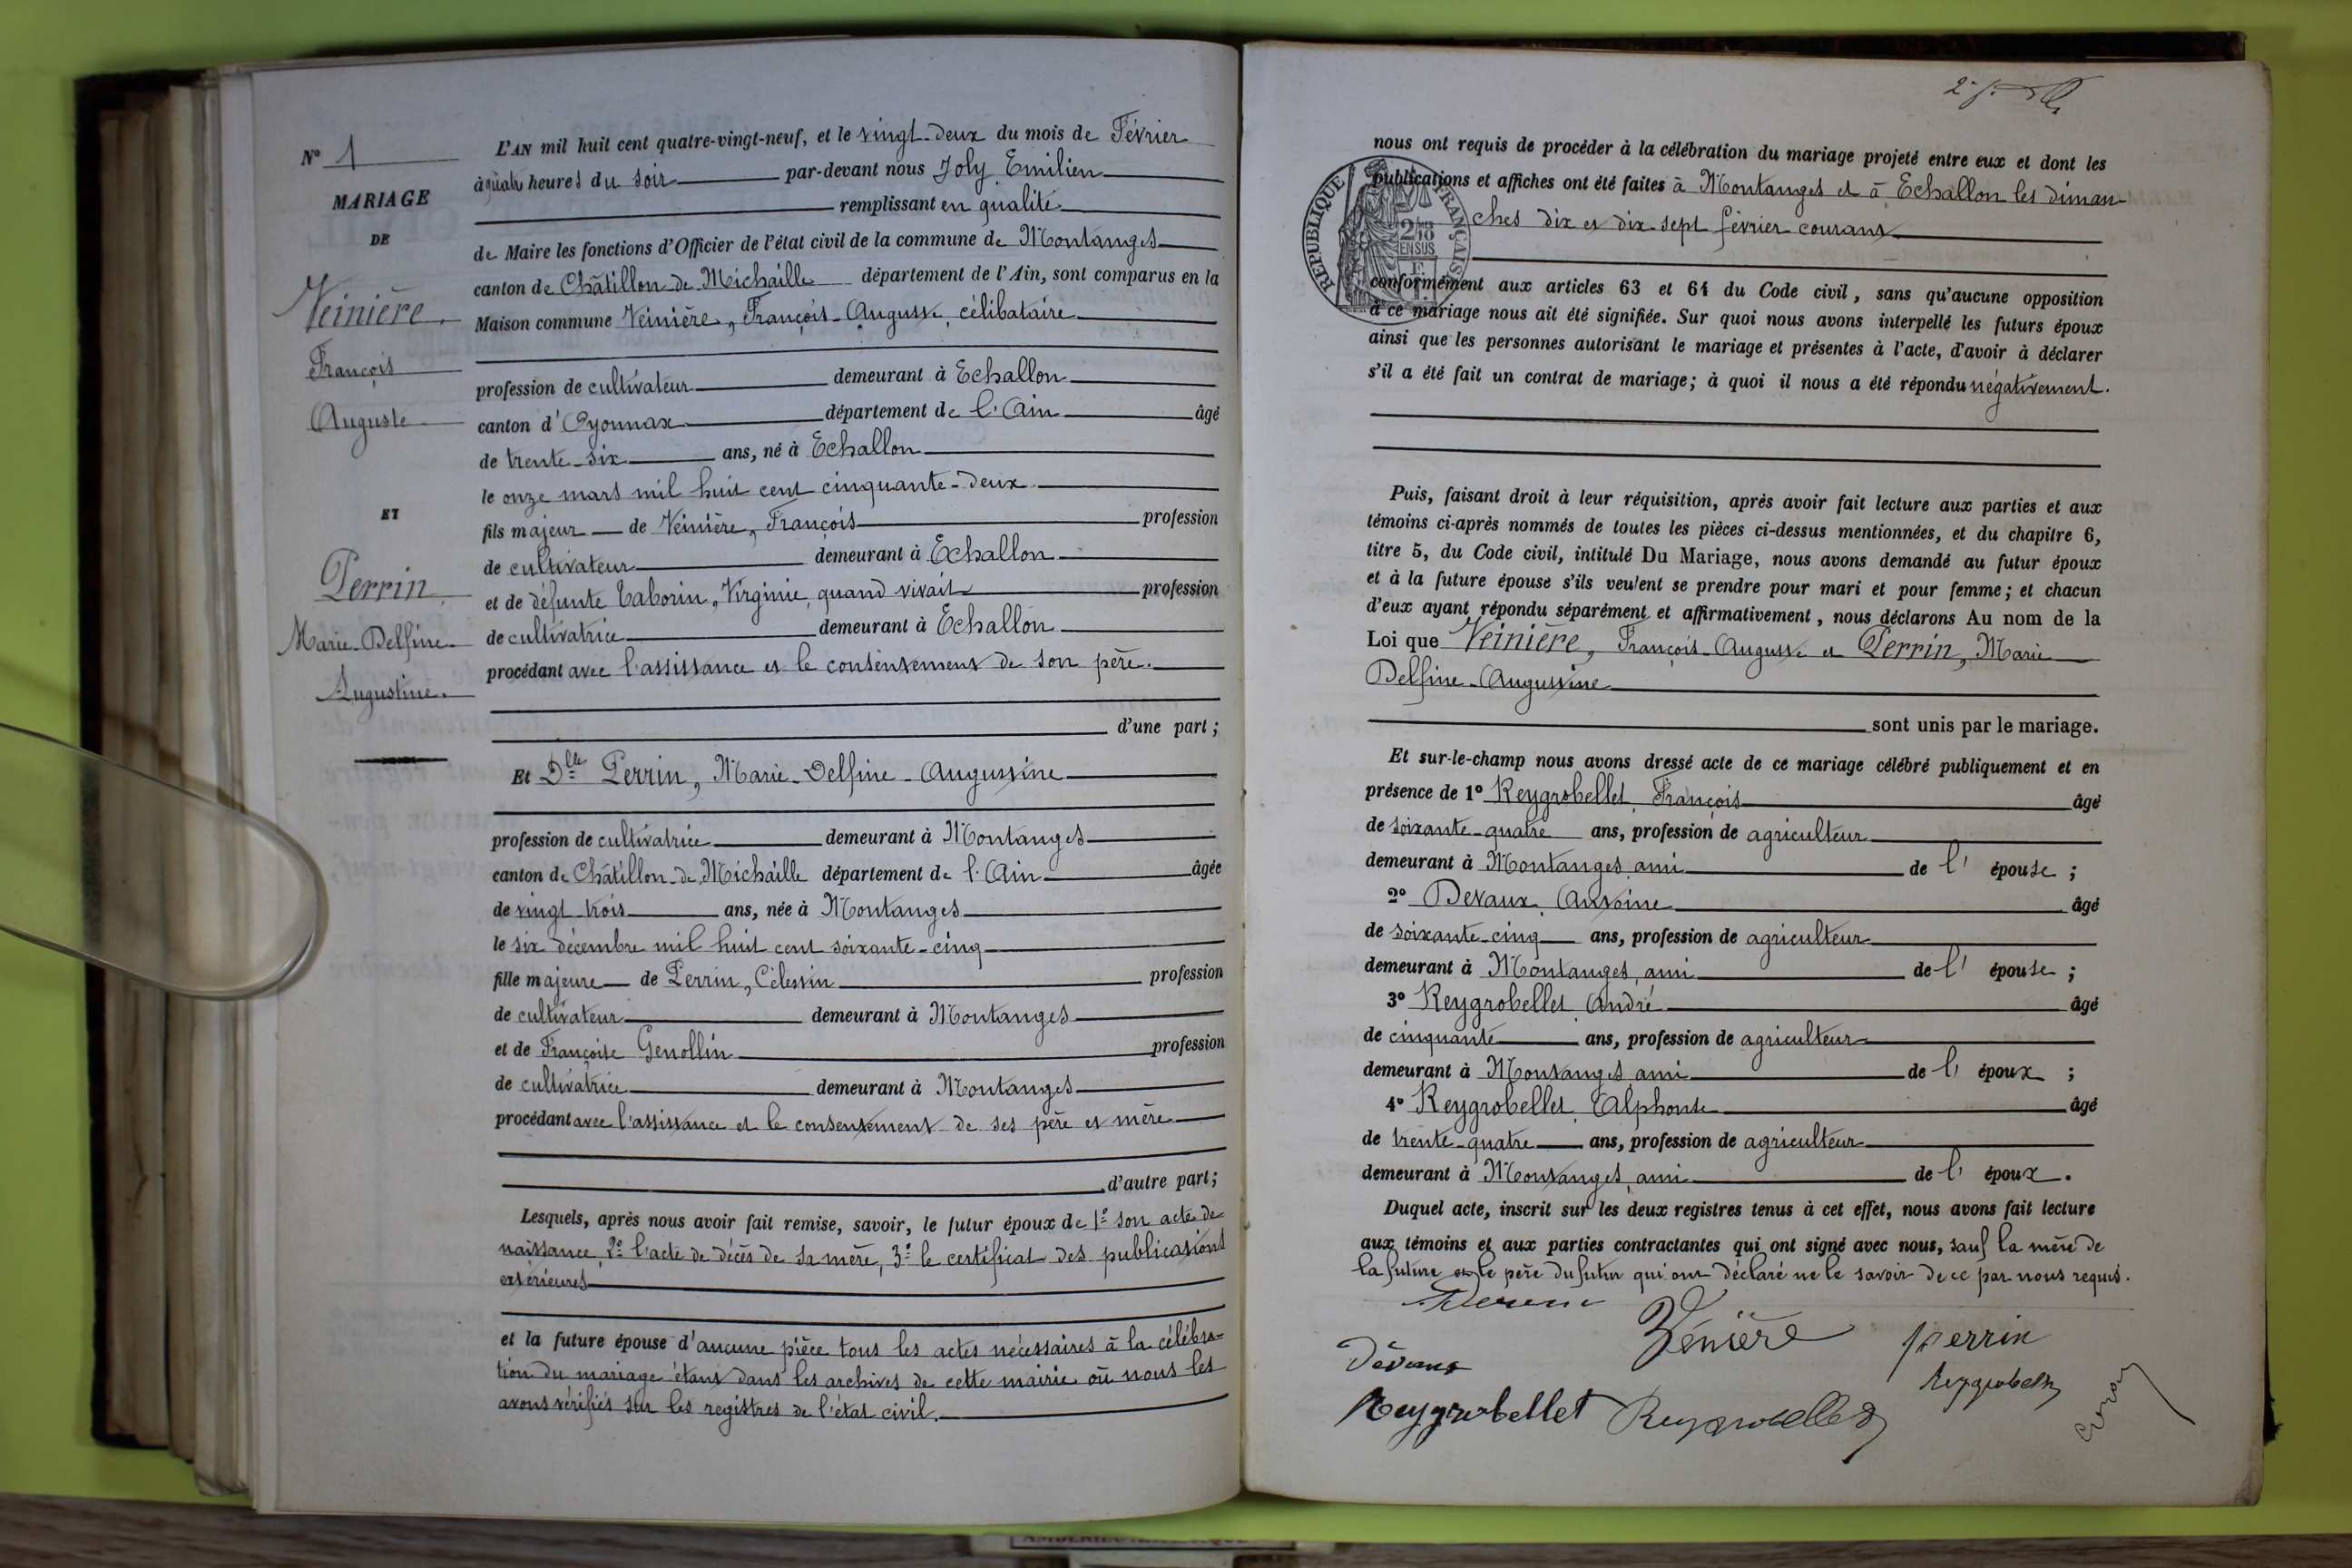 N° 1
MARIAGE
DE
Veinière
François
Auguste
ET
Perrin
Marie-Delfine
Augustine
L'AN mil huit cent quatre-vingt-neuf, et le vingt-deux du mois de Février
à quatre heures du soir par-devant nous Joly Emilien
remplissant en qualité
de Maire les fonctions d'Officier de l'état civil de la commune de Montanges
canton de Châtillon-de-Michaille département de l'Ain, sont comparus en la
Maison commune Veinière, François-Auguste, célibataire
profession de cultivateur demeurant à Echallon
canton d'Oyonnax département de l'Ain âgé
de trente-six ans, né à Echallon
le onze mars mil huit cent cinquante-deux.
fils majeur de Veinière, François profession
de cultivateur demeurant à Echallon
et de défunte Taborin, Virginie, quand vivait profession
de cultivatrice demeurant à Echallon
procédant avec l'assistance et le consentement de son père.
d'une part;
Et Dlle Perrin, Marie-Delfine-Augustine
profession de cultivatrice demeurant à Montanges
canton de Châtillon-de-Michaille département de l'Ain âgée
de vingt-trois ans, née à Montanges
le six décembre mil huit cent soixante-cinq
fille majeure de Perrin, Célestin profession
de cultivateur demeurant à Montanges
et de Françoise Genollin profession
de cultivatrice demeurant à Montanges
procédant avec l'assistance et le consentement de ses père et mère
d'autre part;
Lesquels, après nous avoir fait remise, savoir, le futur époux de 1° son acte de
naissance, 2° l'acte de décès de sa mère, 3° le certificat des publications
extérieures
et la future épouse d'aucune pièce tous les actes nécessaires à la célébra-
tion du mariage étant dans les archives de cette mairie où nous les
avons vérifiés sur les registres de l'état civil.
nous ont requis de procéder à la célébration du mariage projeté entre eux et dont les
publications et affiches ont été faites à Montanges et à Echallon les diman-
ches dix et dix-sept février courant
REPUBLIQUE FRANÇAISE
conformément aux articles 63 et 64 du Code civil, sans qu'aucune opposition
à ce mariage nous ait été signifiée. Sur quoi nous avons interpellé les futurs époux
ainsi que les personnes autorisant le mariage et présentes à l'acte, d'avoir à déclarer
s'il a été fait un contrat de mariage; à quoi il nous a été répondu négativement.
Puis, faisant droit à leur réquisition, après avoir fait lecture aux parties et aux
témoins ci-après nommés de toutes les pièces ci-dessus mentionnées, et du chapitre 6,
titre 5, du Code civil, intitulé Du Mariage, nous avons demandé au futur époux
et à la future épouse s'ils veulent se prendre pour mari et pour femme; et chacun
d'eux ayant répondu séparément et affirmativement, nous déclarons Au nom de la
Loi que Veinière, François-Auguste et Perrin, Marie
Delfine-Augustine
sont unis par le mariage.
Et sur-le-champ nous avons dressé acte de ce mariage célébré publiquement et en
présence de 1° Reygrobellet François âgé
de soixante-quatre ans, profession de agriculteur
demeurant à Montanges ami de l'épouse;
2° Devaux Antoine âgé
de soixante-cinq ans, profession de agriculteur
demeurant à Montanges, ami de l'épouse;
3° Reygrobellet André âgé
de cinquante ans, profession de agriculteur
demeurant à Montanges ami de l'époux;
4° Reygrobellet Alphonse âgé
de trente-quatre ans, profession de agriculteur
demeurant à Montanges, ami de l'époux.
Duquel acte, inscrit sur les deux registres tenus à cet effet, nous avons fait lecture
aux témoins et aux parties contractantes qui ont signé avec nous, sauf la mère de
la future et le père du futur qui ont déclaré ne le savoir de ce par nous requis.
Vénière perrin
Dévaux
Reygrobellet Reygrobellet Reygrobellet